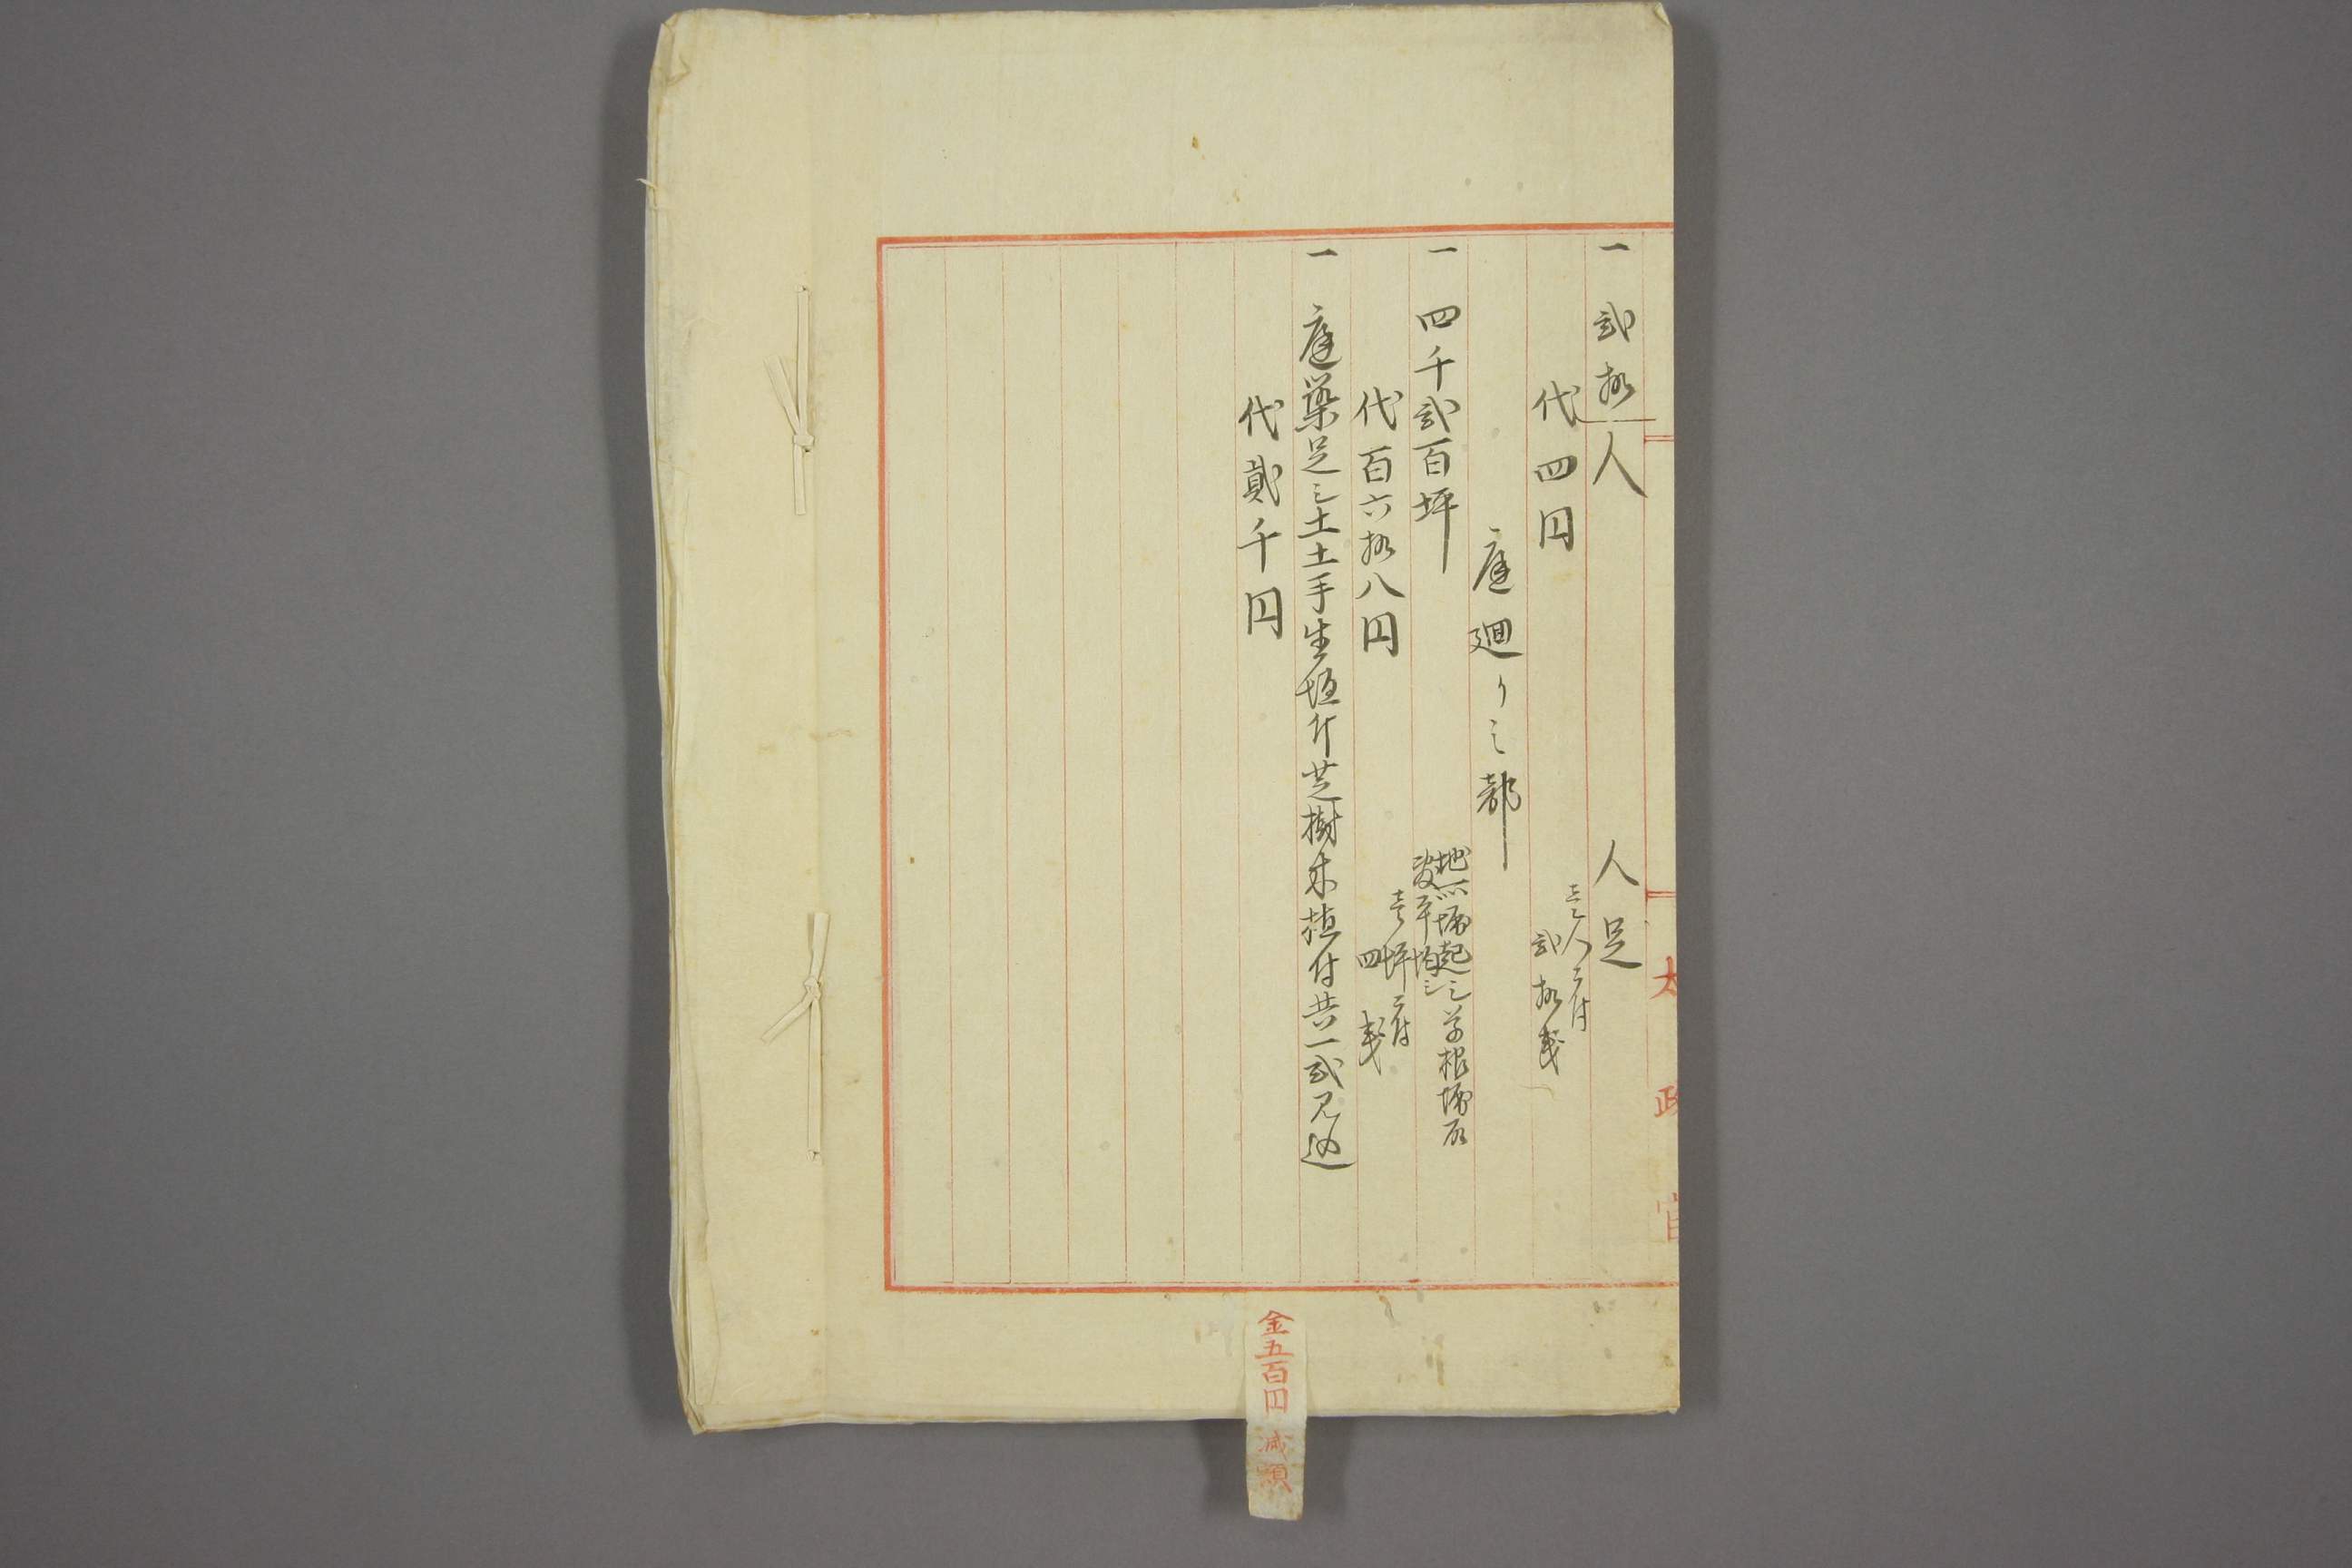 一 弐拾人 人足
代四円 壱人ニ付 弐拾銭
庭廻り之部
一 四千弐百坪 地所堀起シ草根堀取
変平均シ
代百六拾八円 壱坪ニ付 四銭
一 庭築足シ土土手生垣并芝樹木植付共一式見込
代貳千円
太政官
金五百円減額